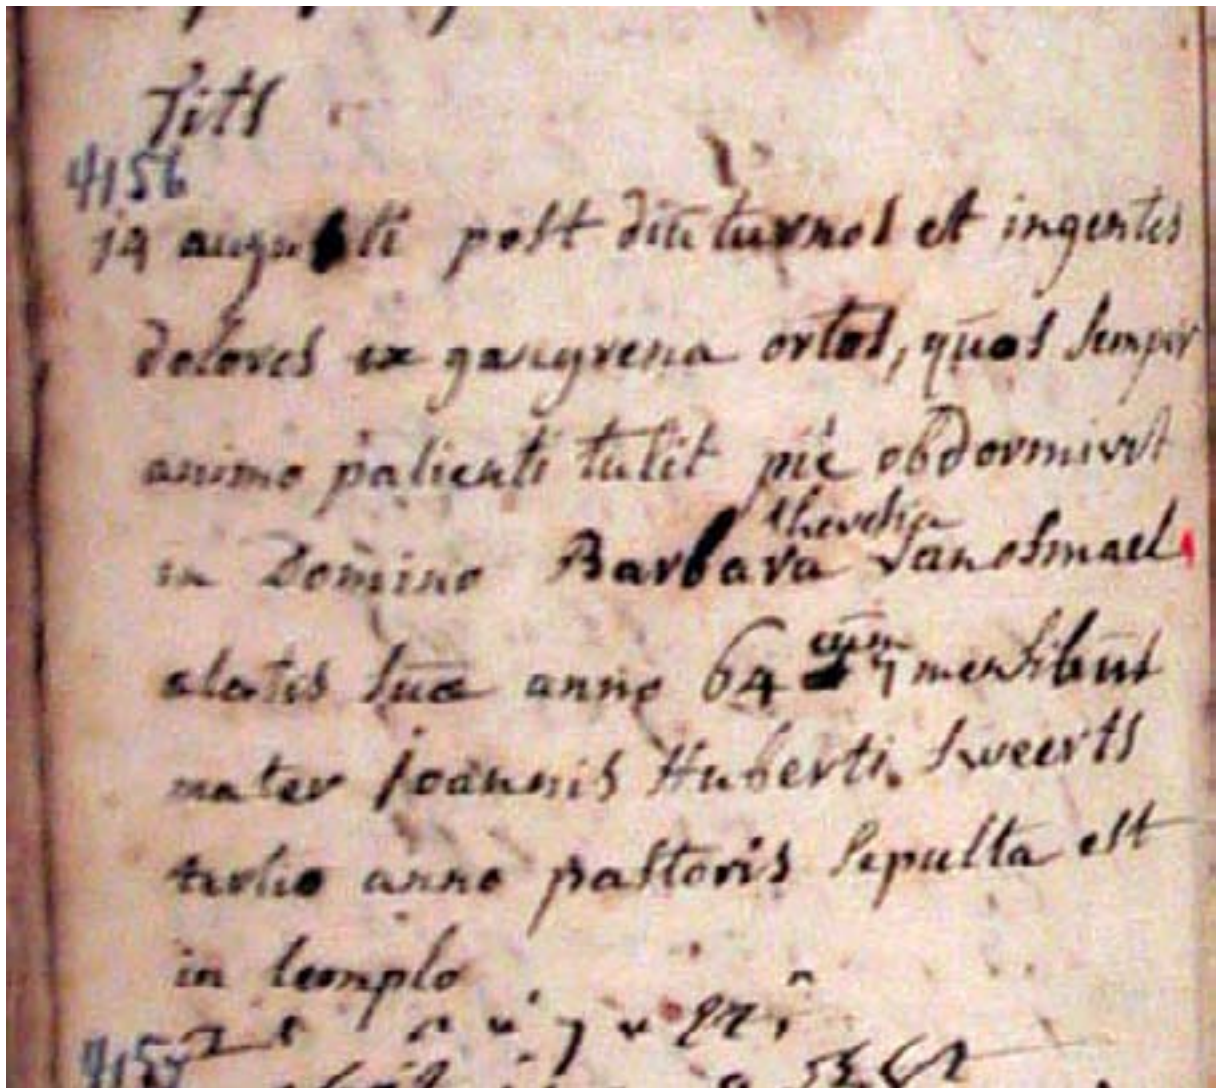 Tits
4156
14 augusti post diuturnos et ingentes
dolores ex gangrena ortos, quos semper
animo patienti tulit pie obdormivit
in Domino Barbara
aetatis suae anno 64 cum 7 mensibus
mater Joannis Huberti Sweerts
tertio anno pastoris sepulta est
in templo